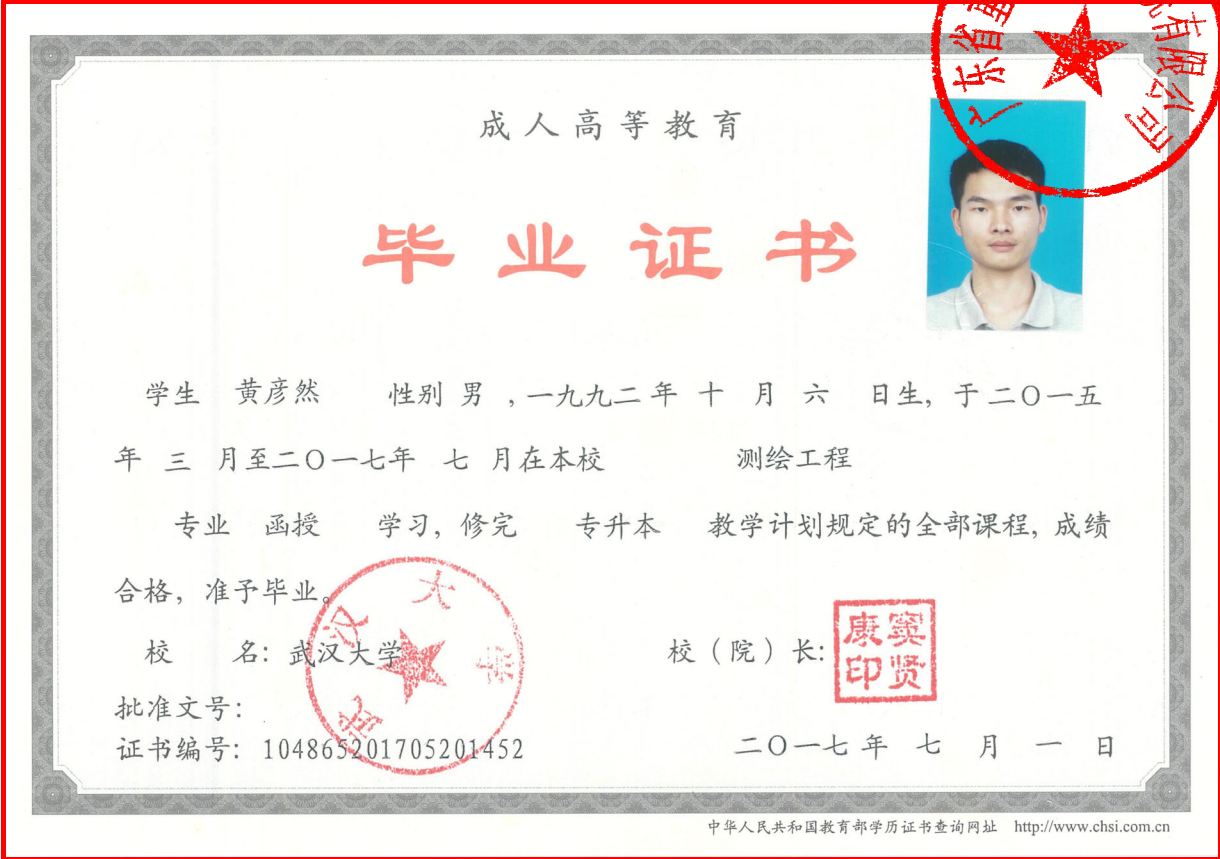 成人高等教育
毕业证书
学生 黄彦然 性别 男 ,一九九二 年 十 月 六 日生, 于 二〇一五
年 三 月至二〇一七年 七 月在本校 测绘工程
专业 函授 学习, 修完 专升本 教学计划规定的全部课程, 成绩
合格, 准予毕业。
校 名: 武汉大学
校（院）长:
窦贤康印
武汉大学
批准文号:
证书编号: 104865201705201452
二〇一七 年 七 月 一 日
中华人民共和国教育部学历证书查询网址 http://www.chsi.com.cn
广东省
有限公司